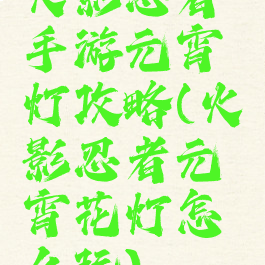 火影忍者
手游元宵
灯攻略(火
影忍者元
宵花灯怎
么玩)